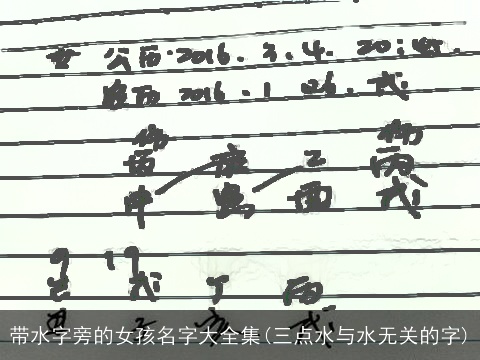 女 公历·2016. 3. 4. 20:
农历 2016 . 1 26. 戌
伤 伤
丙 庚 乙 丙
申 寅 酉 戌
9 19
己 戊 丁 丙
子 亥 戌
带水字旁的女孩名字大全集(三点水与水无关的字)